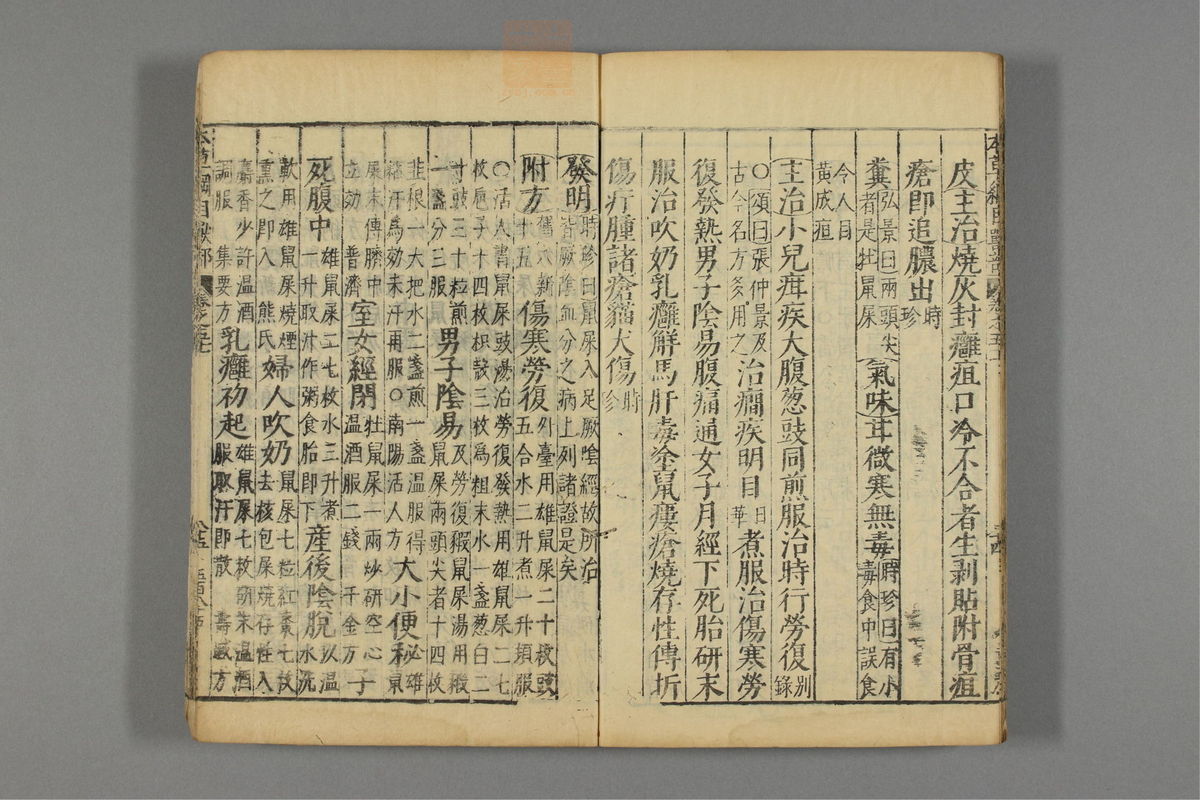 皮主治燒灰封癰疽口冷不合者生剥貼附骨疽
瘡即追膿出時珍
糞弘景曰兩頭尖者是牡鼠屎氣味甘微寒無毒時珍曰有小毒食中誤食
令人目黃成疸
主治小兒疳疾大腹葱豉同煎服治時行勞復別錄
○頌曰張仲景及古今名方多用之治癎疾明目日華煮服治傷寒勞
復發熱男子陰易腹痛通女子月經下死胎研末
服治吹奶乳癰解馬肝毒塗鼠瘻瘡燒存性傅折
傷疔腫諸瘡貓犬傷時珍
發明時珍曰鼠屎入足厥陰經故所治皆厥陰血分之病上列諸證是矣
附方舊八新十五傷寒勞復外臺用雄鼠屎二十枚豉五合水二升煮一升頓服
○活人書鼠屎豉湯治勞復發熱用雄鼠屎二七枚巵子十四枚枳殼三枚爲粗末水一盞葱白二
寸豉三十粒煎一盞分三服男子陰易及勞復豭鼠屎湯用豭鼠屎兩頭尖者十四枚
韭根一大把水二盞煎一盞温服得粘汗爲効未汗再服○南陽活人方大小便秘雄鼠
屎末傅臍中立効普濟方室女經閉牡鼠屎一兩炒研空心温酒服二錢千金方子
死腹中雄鼠屎二七枚水三升煮一升取汁作粥食胎即下産後陰脫以温水洗
軟用雄鼠屎燒煙熏之即入熊氏婦人吹奶鼠屎七粒紅棗七枚去核包屎燒存性入
麝香少許温酒調服集要方乳癰初起雄鼠屎七枚研末温酒服取汗即散壽域方